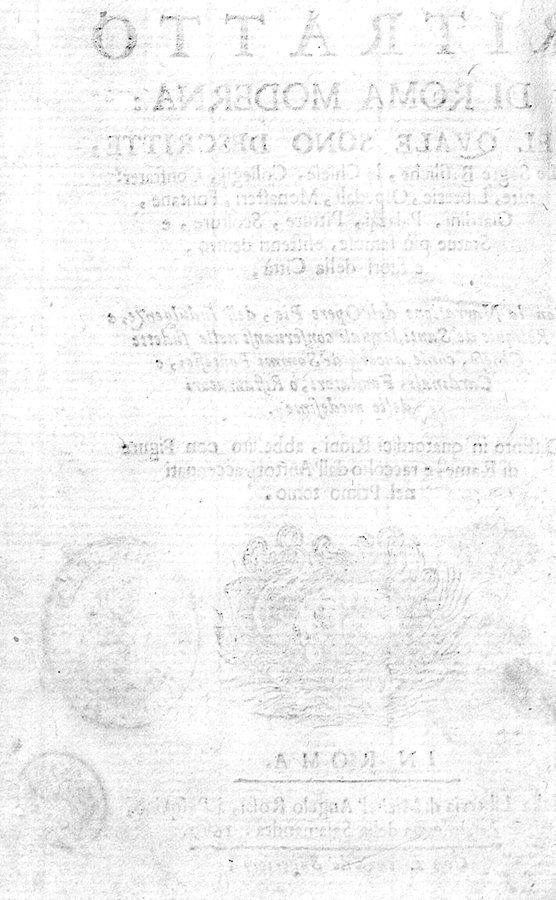 RITRATTO
DI ROMA MODERNA:
EL QVALE SONO DESCRITTE,
Sagre Basiliche, le Chiese, Collegii, Confrater-
nite, Librerie, Ospedali, Monasteri, Fontane,
Giardini, Palazzi, Pitture, Scolture, e
Statue più famose, esistenti dentro,
e fuori della Città,
la Narrazione dell'Opere Pie, dell'Indulgenze, e
Reliquie de' Santi, conservansi nelle sudette
Chiese, come ancora de' Sommi Pontefici, e
Cardinali, Fondatori, o Ristauratori
delle medesime.
in quatordici Rioni, abbellito con Figure
di Rame, e raccolto dall'Autori accennati
nel Primo tomo.
IN ROMA.
Libraria di Michel'Angelo Rossi,
all'insegna della Salamandra.